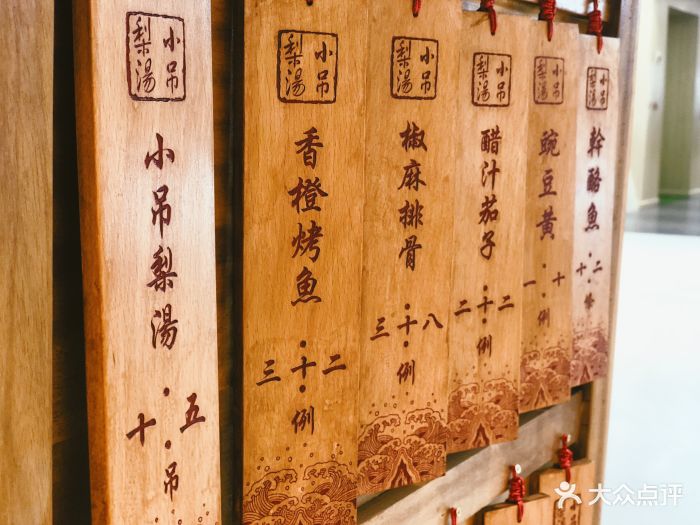 小吊梨湯
小吊梨湯
十五
吊
小吊梨湯
香橙烤魚
三十二
例
小吊梨湯
椒麻排骨
三十八
例
小吊梨湯
醋汁茄子
二十二
例
小吊梨湯
豌豆黃
一十
例
小吊梨湯
幹酪魚
十二
大众点评